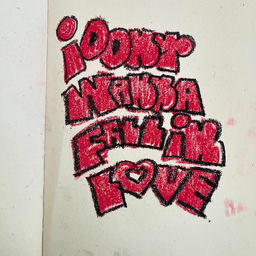 i DONT
WANNA
FALL IN
LOVE